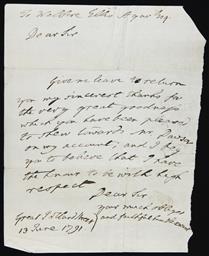 To Welbore Ellis Agar Esq.
Dear Sir
Give me leave to return
you my sincerest thanks for
the very great goodness
which you have been pleased
to shew towards Mr.
on my account; and I beg
you to believe that I have
the honour to be with high
respect
Dear Sir,
your much obliged
and faithful humble servant
Great Portland Street
13 June 1791